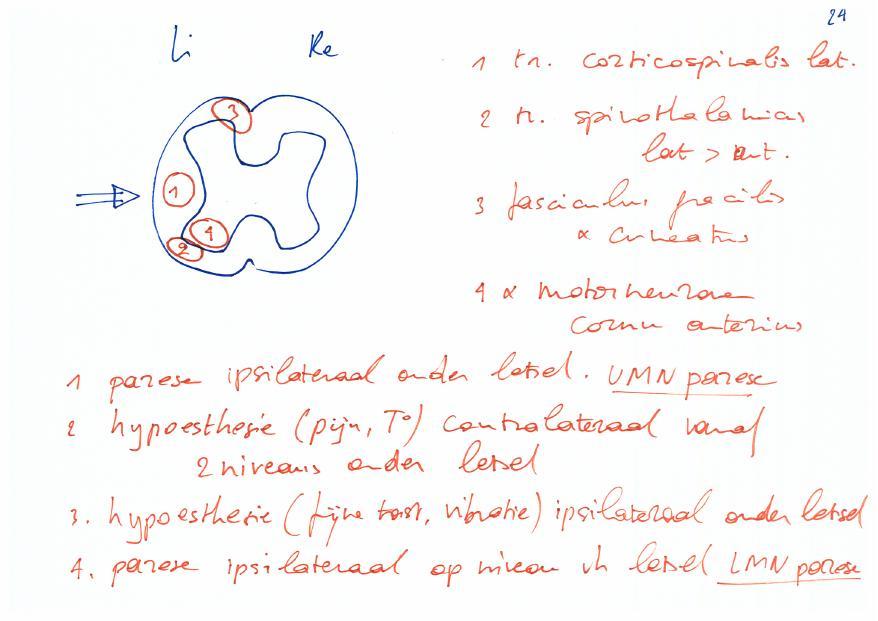 24
Li Re
1 tr. corticospinalis lat.
2 tr. spinothalamicus
lat > ant.
3 fasciculus gracilis
& cuneatus
4 α motorneuronen
cornu anterius
3
1
4
2
1 parese ipsilateraal onder letsel. UMN parese
2 hypoesthesie (pijn, T°) contralateraal vanaf
2 niveaus onder letsel
3. hypoesthesie (fijne tast, vibratie) ipsilateraal onder letsel
4. parese ipsilateraal op niveau vh letsel LMN parese